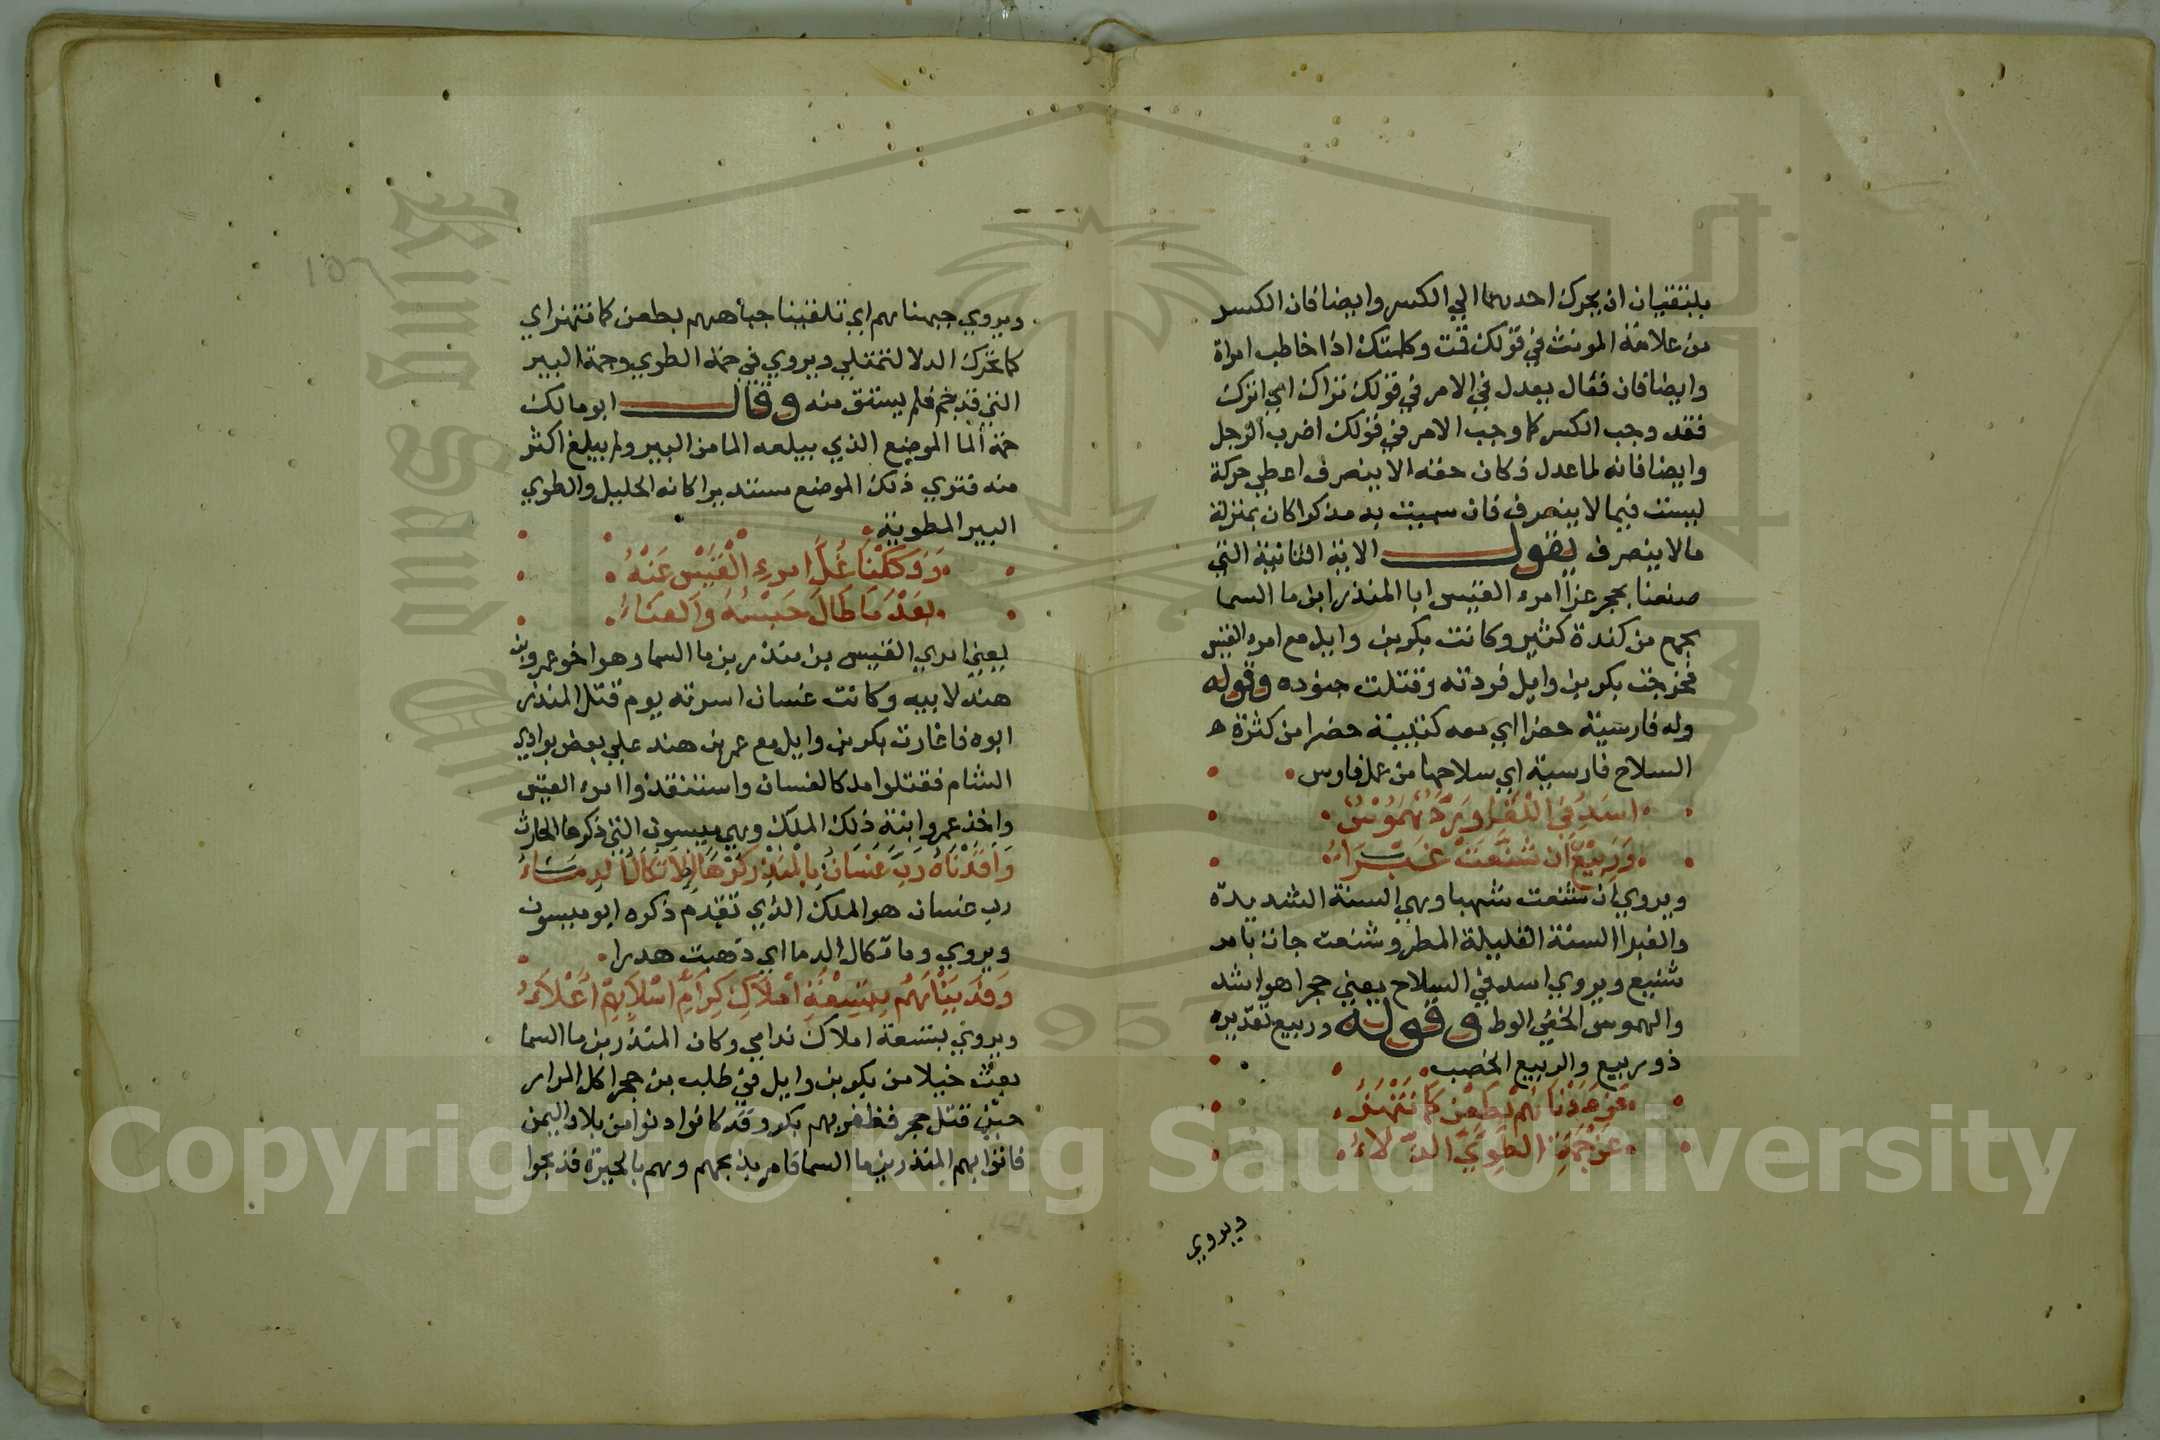 يلتقيان ان يحرك احدهما الي الكسر وايضا فان الكسر
من علامة المونث في قولك قمت وكلمتك اذا خاطب امراة
وايضا فان فعال يعدل في الامر في قولك نزاك اي اترك
فقد وجب الكسر كما وجب الامر في قولك اضرب الرجل
وايضا فانه لما عدل وكان حقه الا ينصرف اعطي حركة
ليست فيما لا ينصرف فان سميت به مذكرا كان بمنزلة
ما لا ينصرف يقول الاية الثانية التي
صنعنا بحجر عزا امرء القيس ابا المنذر ابن ما السما
بجمع من كندة كثير وكانت بكر بن وايل مع امرء القيس
فخرجت بكر بن وايل فردته وقتلت جنوده وقوله
وله فارسية خضرا اي معه كتيبة خضرا من كثرة
السلاح فارسية اي سلاحها من عمل فارس
اسد في اللقا ورد هموس
وربيع ان شنعت غبراء
ويروي ان شنعت شهبا وهي السنة الشديدة
والغبرا السنة القليلة المطر وشنعت جات بامر
شنيع ويروي اسد في السلاح يعني حجرا هو اشد
والهموس الخفي الوط وقوله وربيع تقديره
ذو ربيع والربيع الخصب
فرددناهم بطعن كما تنهز
عن جمة الطوي الدلاء
ويروي
ويروي جبهناهم اي تلقينا جباههم بطعن كما تنهز اي
كما تحرك الدلا لتمتلي ويروي في جمة الطوي وجمة البير
التي قد جم فلم يستق منه وقال ابو مالك
جمة الما الموضع الذي يبلغه الما من البير ولم يبلغ اكثر
منه فتري ذلك الموضع مستديرا كانه اكليل والطوي
البير المطوية
وفككنا غل امرء القيس عنه
بعد ما طال حبسه والعناء
يعني امري القيس بن منذر بن ما السما وهو اخو عمرو بن
هند لابيه وكانت غسان اسرته يوم قتل المنذر
ابوه فاغارت بكر بن وايل مع عمرو بن هند علي بعض بوادي
الشام فقتلوا ملكا لغسان واستنقذوا امرء القيس
واخذ عمرو ابنة ذلك الملك وهي ميسون التي ذكرها الحارث
واقدناه رب غسان بالمنذر كرها اذ لا تكال الدماء
رب غسان هو الملك الذي تقدم ذكره ابو ميسون
ويروي وما تكال الدما اي ذهبت هدرا
وفديناهم بتسعة املاك كرام اسلابهم اغلاء
ويروي بتسعة املاك ندامي وكان المنذر بن ما السما
بعث خيلا من بكر بن وايل في طلب بن حجر اكل المرار
حين قتل حجر فظفر بهم بكر وقد كانوا دنوا من بلاد اليمن
فاتوا بهم المنذر بن ما السما فامر بذبحهم وهم بالحيرة فذبحوا
Copyright © King Saud University
1957